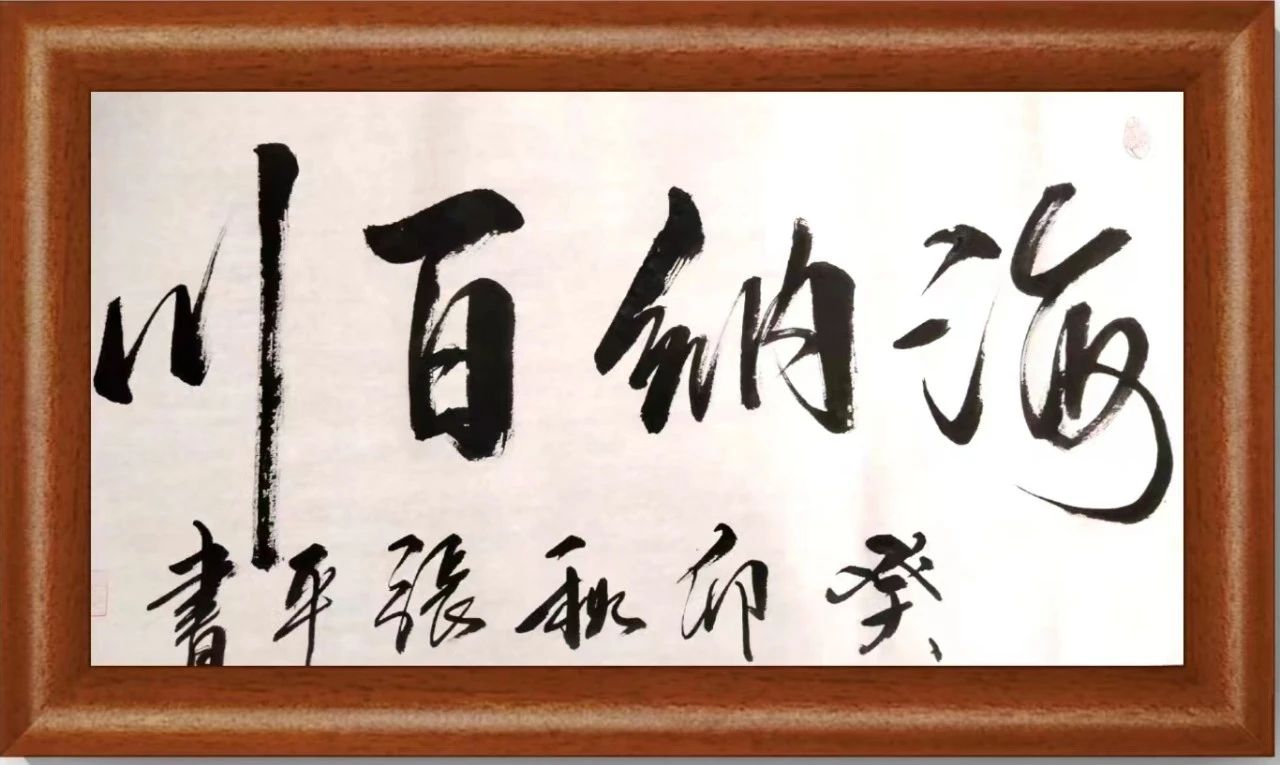 海納百川
癸卯秋張平書